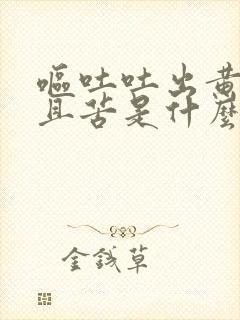 嘔吐吐出黄
且苦是什麼
金錢草